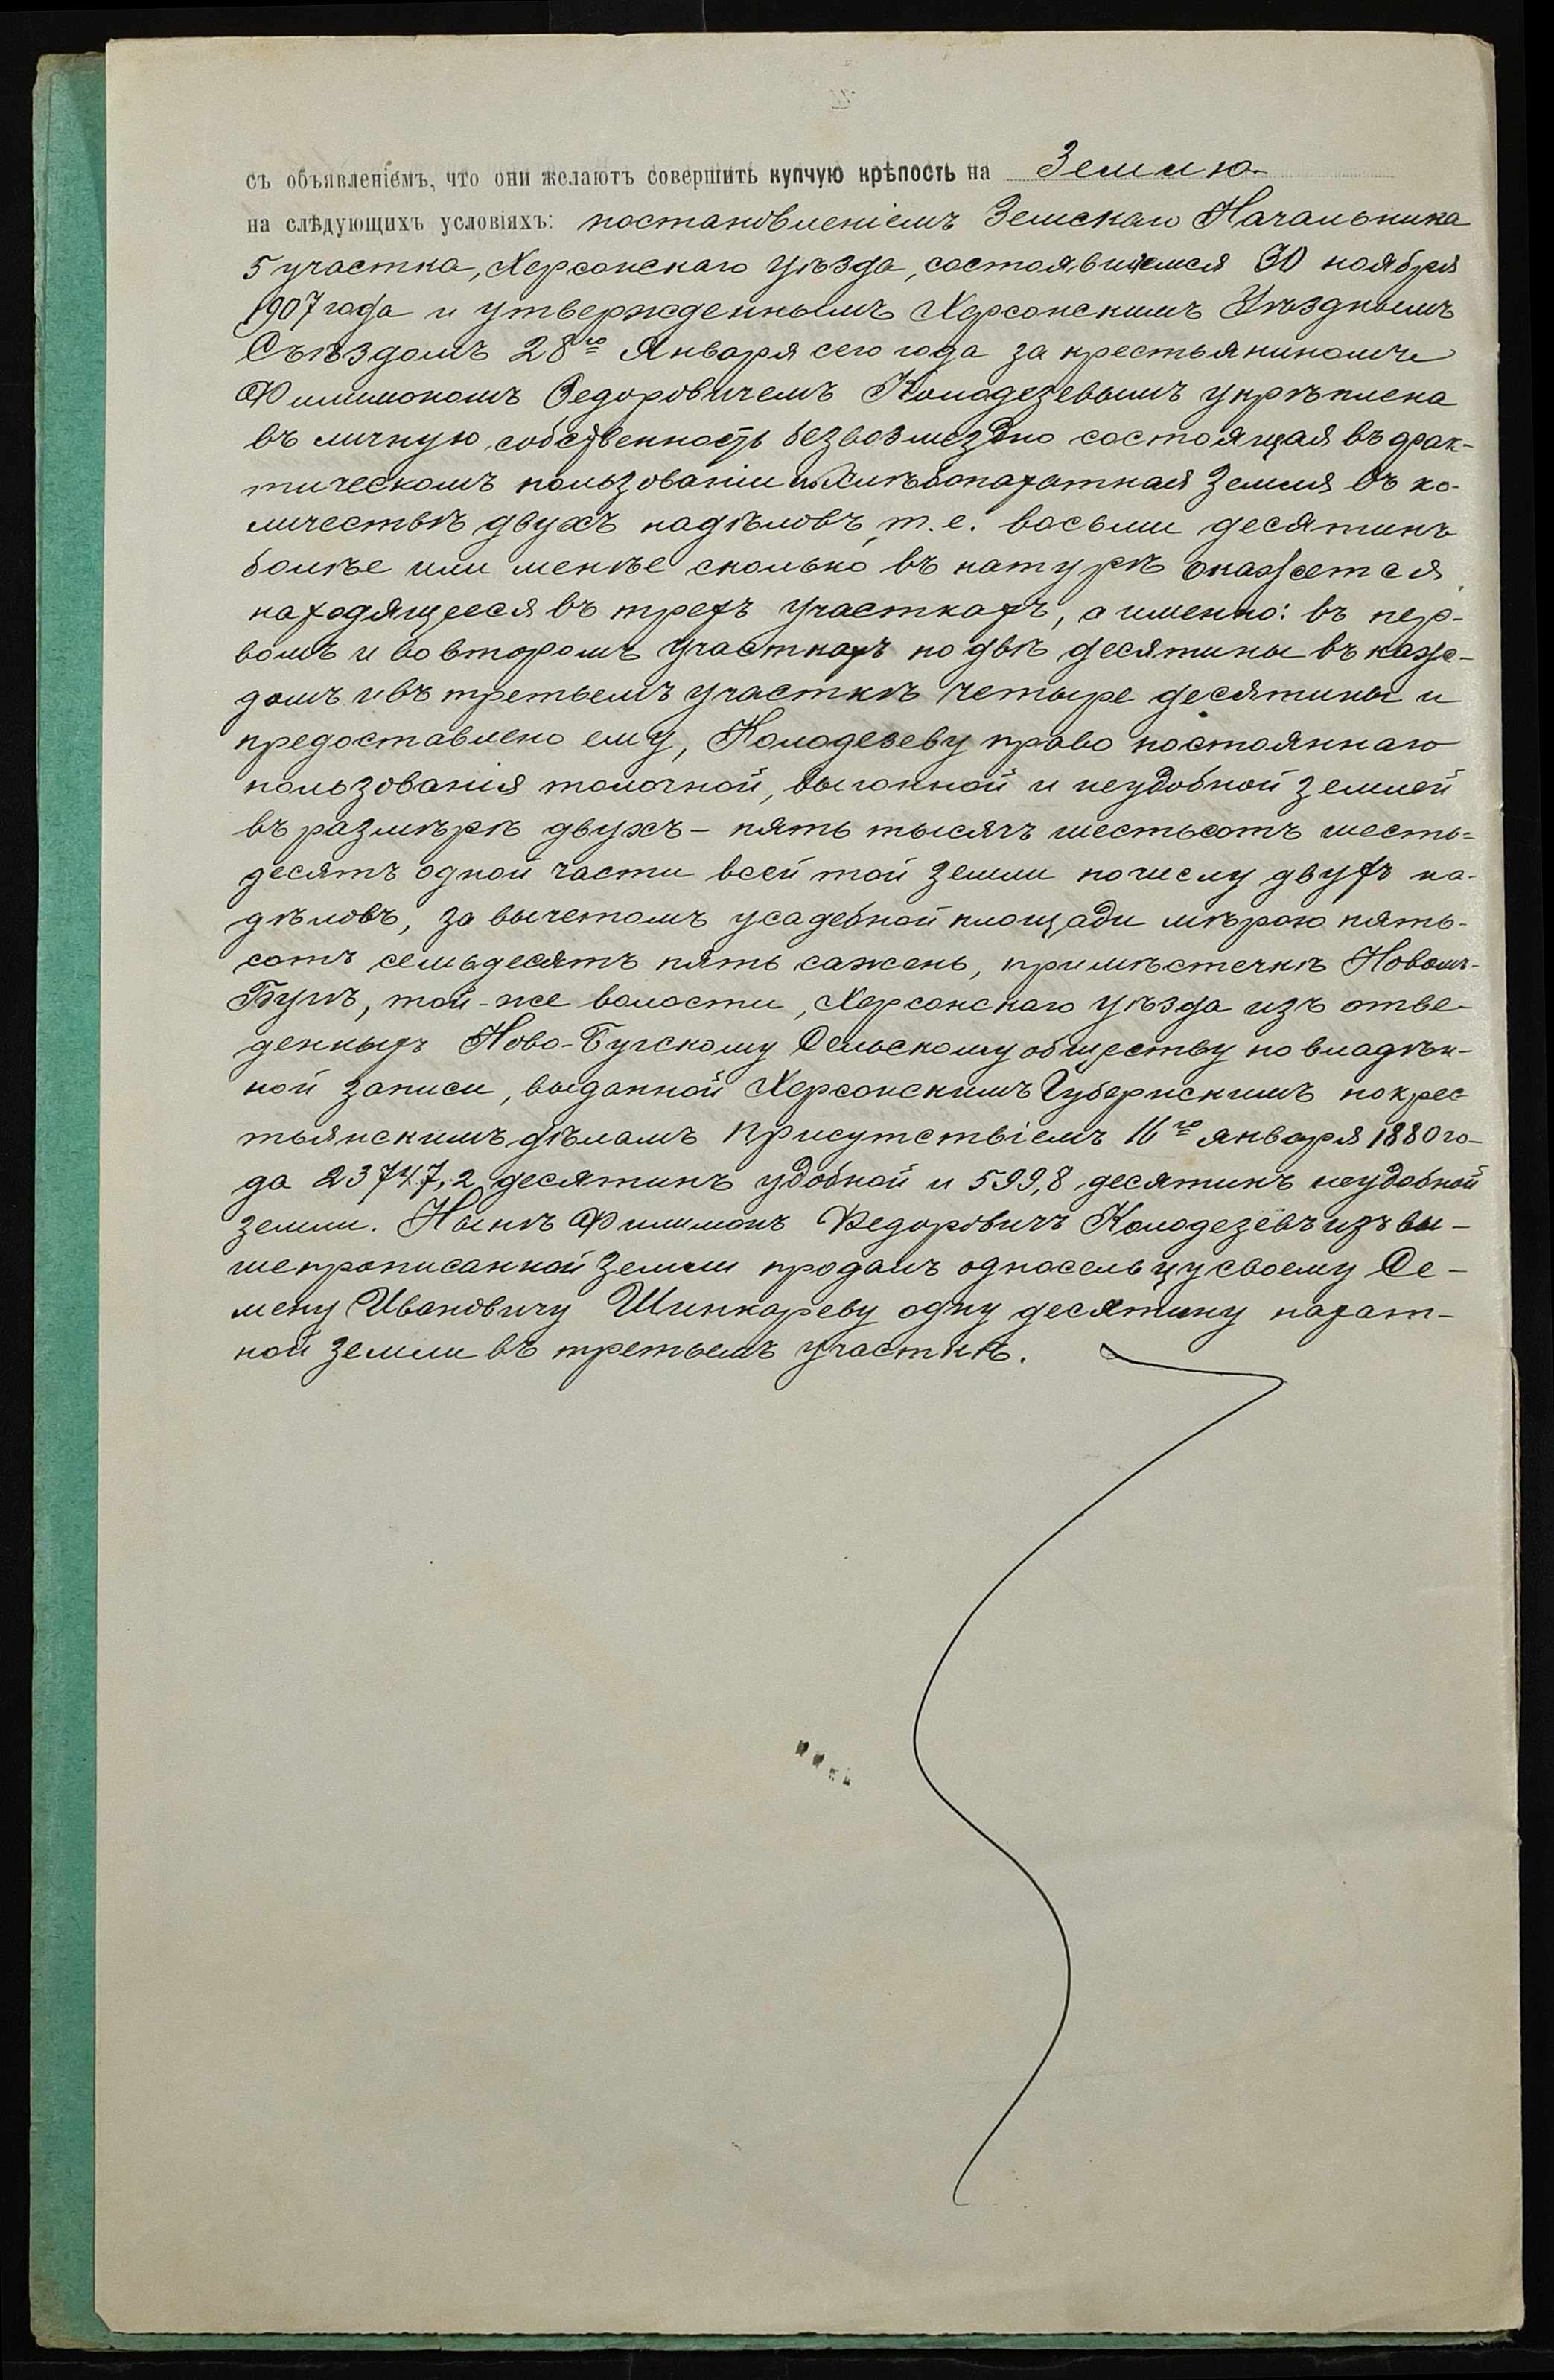 съ объявленіемъ, что они желаютъ совершить купчую крѣпость на Землю
на слѣдующихъ условіяхъ: постановленіемъ Земскаго Начальника
5 участка, Херсонскаго уѣзда, состоявшемся 30 ноября
1907 года и утвержденнымъ Херсонскимъ Уѣзднымъ
Съѣздомъ 28го Января сего года за крестьяниномъ
Филимономъ Ѳедоровичемъ Колодезевымъ укрѣплена
въ личную собственность безвозмездно состоящая въ фак-
тическомъ пользованіи хлѣбопахатная земля въ ко-
личествѣ двухъ надѣловъ, т.е. восьми десятинъ
болѣе или менѣе сколько въ натурѣ окажется
находящееся въ трехъ участкахъ, а именно: въ пер-
вомъ и во второмъ участкахъ по двѣ десятины въ каж-
домъ и въ третьемъ участкѣ четыре десятины и
предоставлено ему, Колодезеву право постояннаго
пользованія толочной, выгонной и неудобной землей
въ размѣрѣ двухъ - пять тысячъ шестьсотъ шесть-
десятъ одной части всей той земли по числу двухъ на-
дѣловъ, за вычетомъ усадебной площади мѣрою пять-
сотъ семьдесятъ пять сажень, при мѣстечкѣ Новомъ-
Бугѣ, той-же волости, Херсонскаго уѣзда изъ отве-
денныхъ Ново-Бугскому Сельскому обществу по владѣн-
ной записи, выданной Херсонскимъ Губернскимъ по крес
тьянскимъ дѣламъ Присутствіемъ 16го января 1880 го-
да 23747,2 десятинъ удобной и 599,8 десятинъ неудобной
земли. Нынѣ Филимонъ Ѳедоровичъ Колодезевъ изъ вы-
шепрописанной земли продалъ односельцу своему Се-
мену Ивановичу Шинкареву одну десятину пахат-
ной земли въ третьемъ участкѣ.